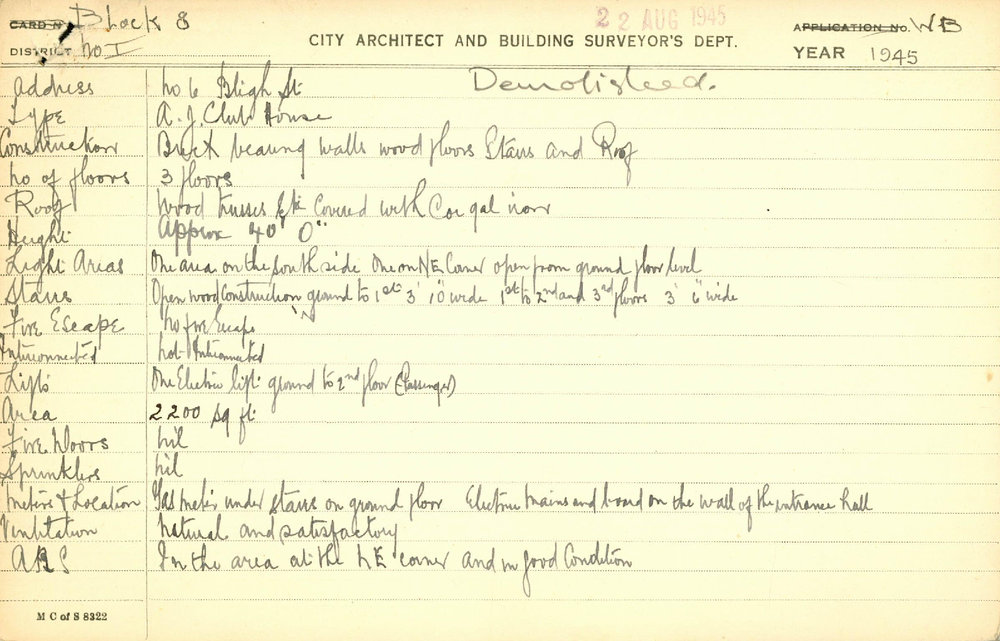 CARD No Block 8
22 AUG 1945
APPLICATION No. WB
DISTRICT No I
CITY ARCHITECT AND BUILDING SURVEYOR'S DEPT.
YEAR 1945
Address No 6 Bligh St. Demolished.
Type A. J. Club House
Construction Brick bearing walls wood floors Stairs and Roof
No of floors 3 floors
Roof Wood trusses Etc Covered with Cor gal iron
Height Approx 40' 0"
Light Areas One area on the south side One on NE Corner open from ground floor level
Stairs Open wood construction ground to 1st 3' 10" wide 1st to 2nd and 3rd floors 3' 6" wide
Fire Escape No fire Escape
Interconnected Not Interconnected
Lifts One Electric lift ground to 2nd floor (Passenger)
Area 2200 sq ft.
Fire Doors Nil
Sprinklers Nil
Meters & Location Gas meter under stairs on ground floor Electric mains and board on the wall of the entrance hall
Ventilation Natural and satisfactory
In the area at the NE corner and in good Condition
M C of S 8322